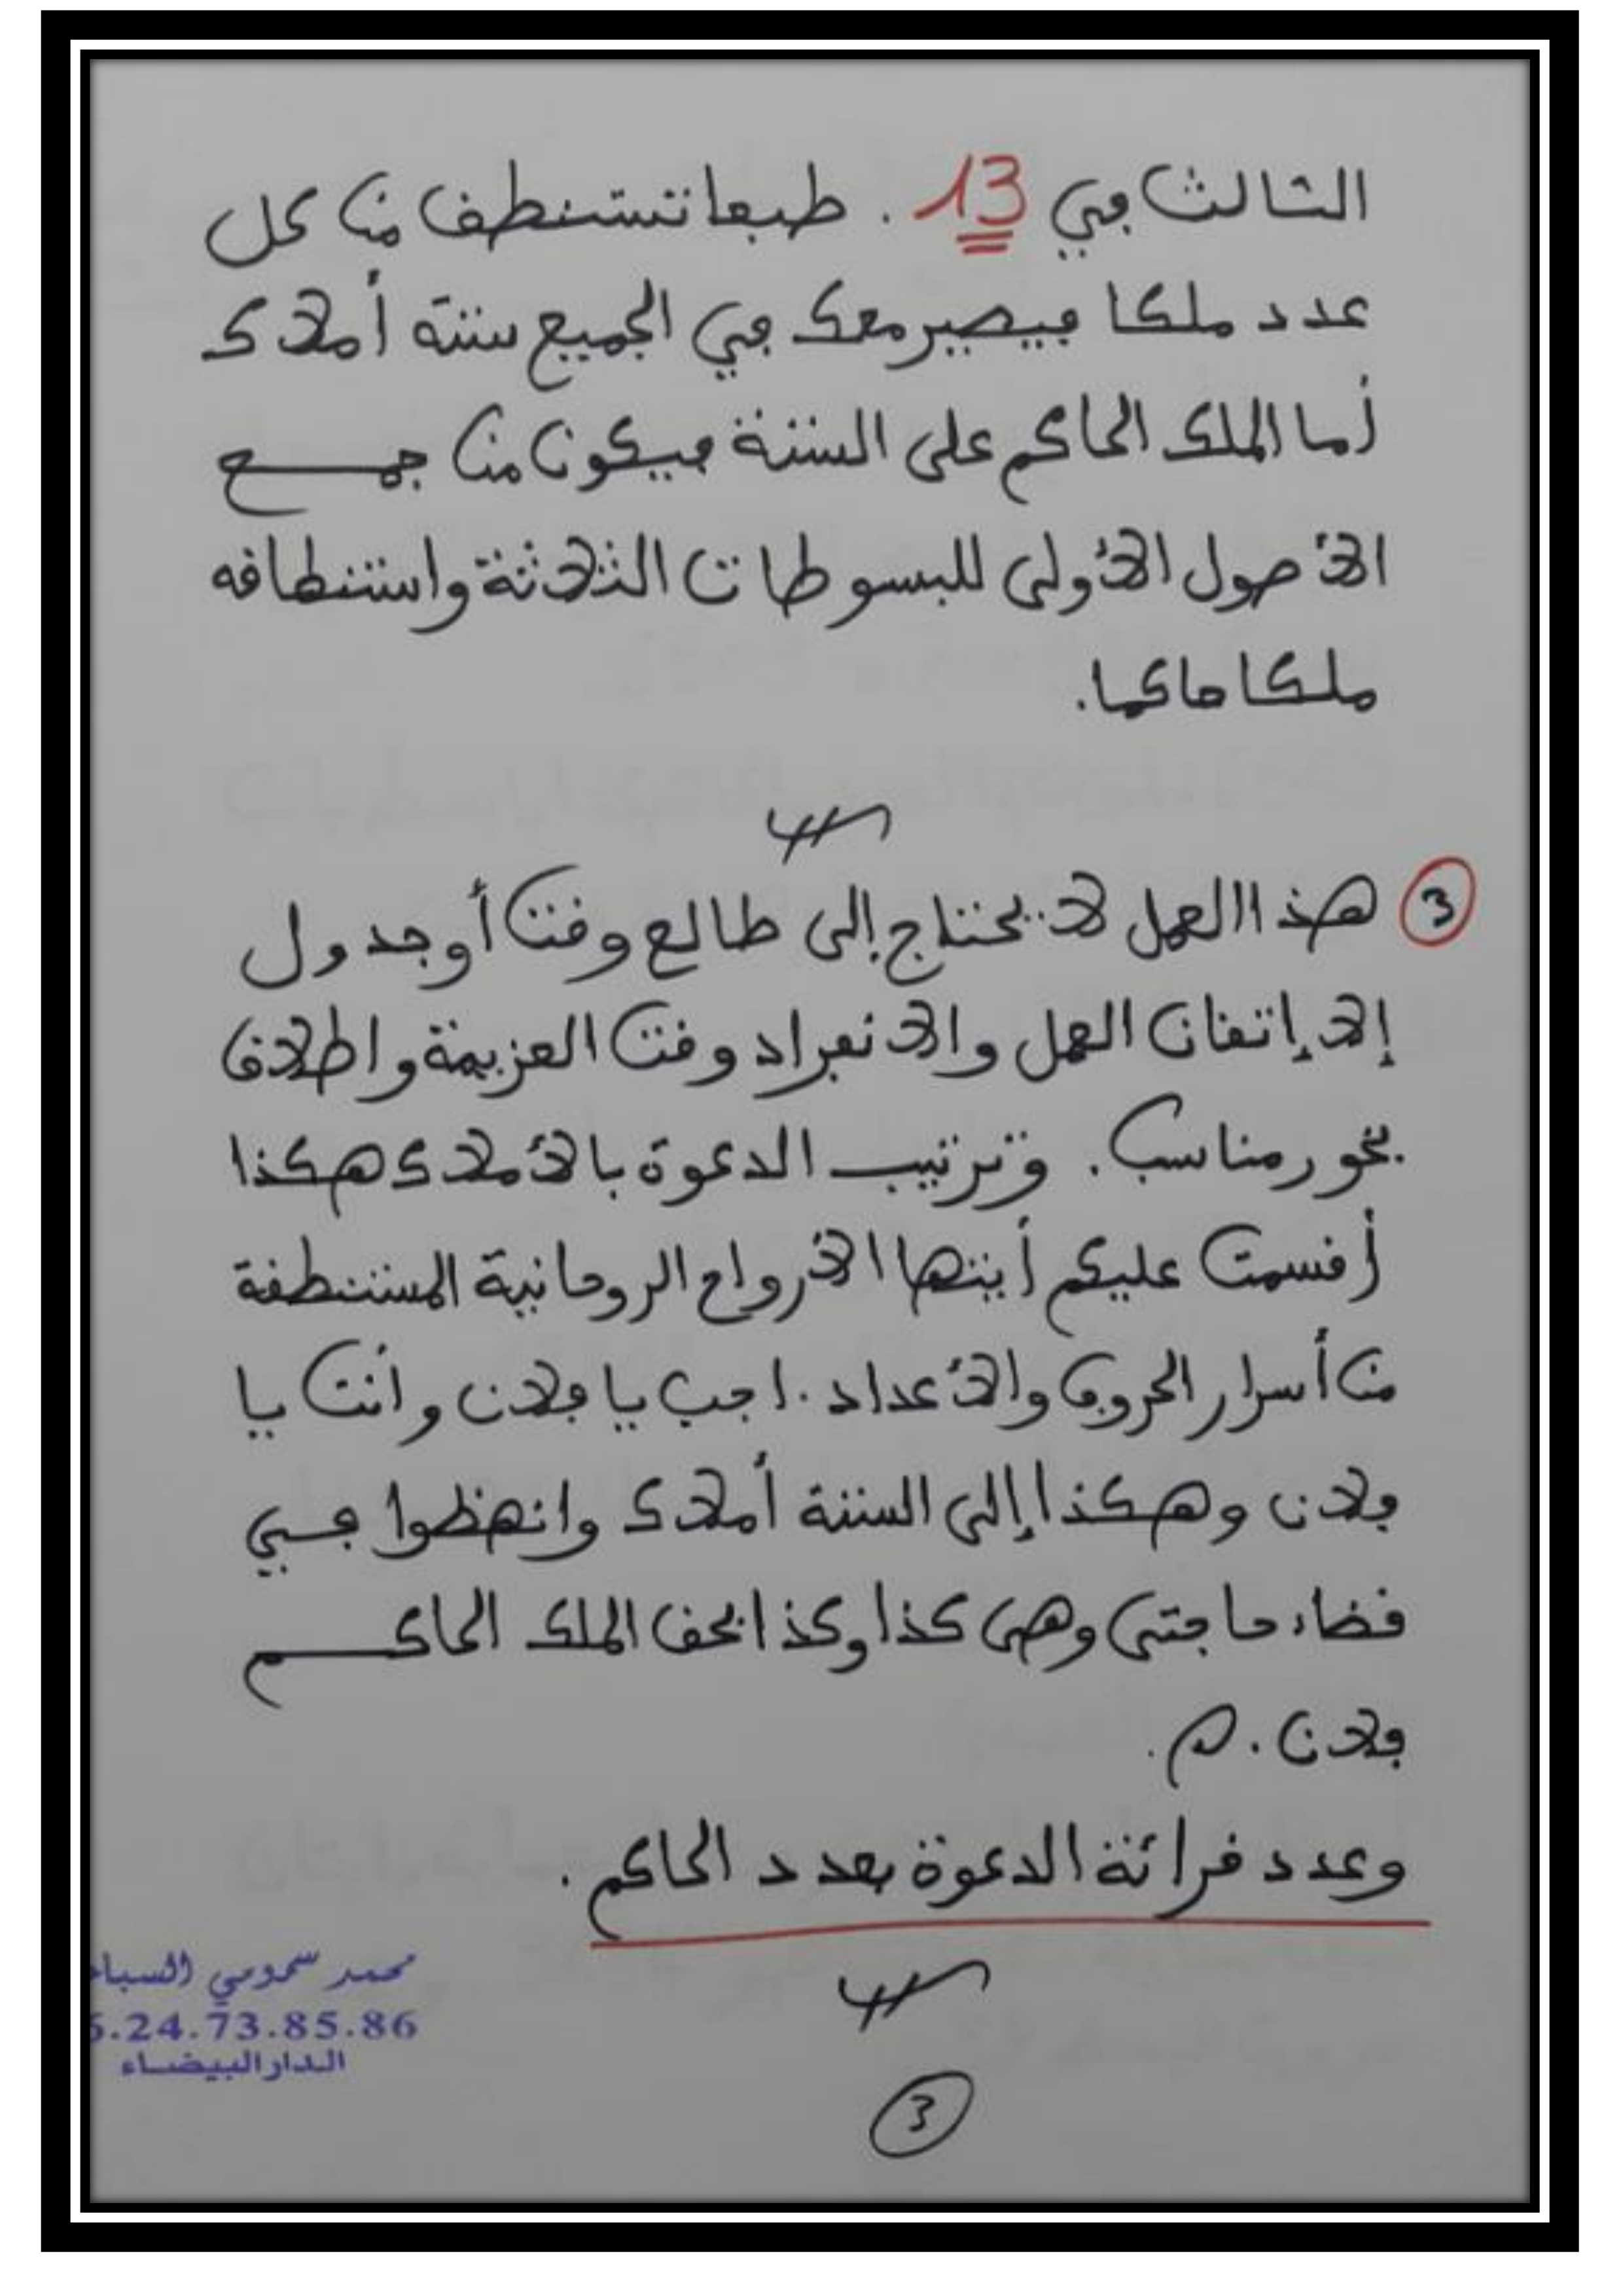 الثالث في 13 . طبعا تستنطق من كل
عدد ملكا فيصير معك في الجميع ستة أملاك
أما الملك الحاكم على الستة فيكون من جمع
الأصول الأولى للبسوطات الثلاثة واستنطاقه
ملكا حاكما.
3 هذا العمل لا يحتاج إلى طالع وقت أو جدول
إلا إتقان العمل والانفراد وقت العزيمة واطلاق
بخور مناسب. وترتيب الدعوة بالأملاك هكذا
أقسمت عليكم أيتها الأرواح الروحانية المستنطقة
من أسرار الحروف والأعداد . اجب يا فلان وأنت يا
فلان وهكذا إلى الستة أملاك وانهظوا في
قضاء حاجتي وهي كذا وكذا بحق الملك الحاكم
فلان . م .
وعدد قرائة الدعوة بعدد الحاكم .
محمد سمومي
.24.73.85.86
الدار البيضاء
3